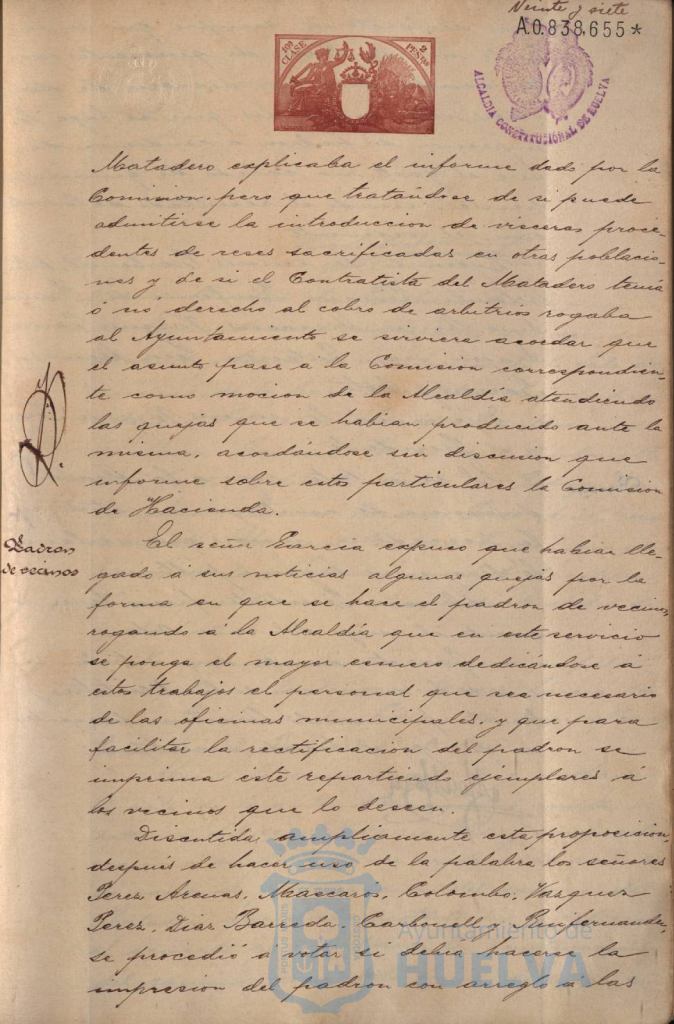 Veinte y siete
A.0.838,655*
10ª CLASE
2 PESETAS
ALCALDIA CONSTITUCIONAL DE HUELVA
Matadero explicaba el informe dado por la
Comision, pero que tratándose de si puede
admitirse la introduccion de visceras proce-
dentes de reses sacrificadas en otras poblacio-
nes y de si el Contratista del Matadero tenia
ó nó derecho al cobro de arbitrios rogaba
al Ayuntamiento se sirviera acordar que
el asunto pase á la Comision correspondien-
te como mocion de la Alcaldía atendiendo
las quejas que se habian producido ante la
misma, acordándose sin discusion que
informe sobre estos particulares la Comision
de Hacienda.
Padron
de vecinos
El señor Garcia expuso que habian lle-
gado á sus noticias algunas quejas por la
forma en que se hace el padron de vecinos,
rogando á la Alcaldía que en este servicio
se ponga el mayor esmero dedicándose á
estos trabajos el personal que sea necesario
de las oficinas municipales, y que para
facilitar la rectificacion del padron se
imprima este repartiendo ejemplares á
los vecinos que lo deseen.
Discutida ampliamente esta proposicion,
después de hacer uso de la palabra los señores
Perez Arenas, Mascaros, Colombo, Vazquez
Perez, Diaz Barreda, Carbonell y Ruifernandez,
se procedió á votar si debia hacerse la
impresion del padron con arreglo a las
Ayuntamiento de
HUELVA